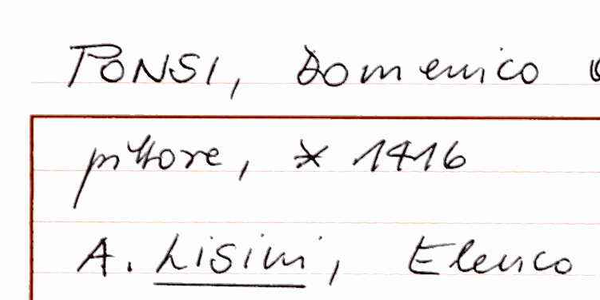 PONSI, Domenico
pittore, * 1416
A. Lisini, Elenco